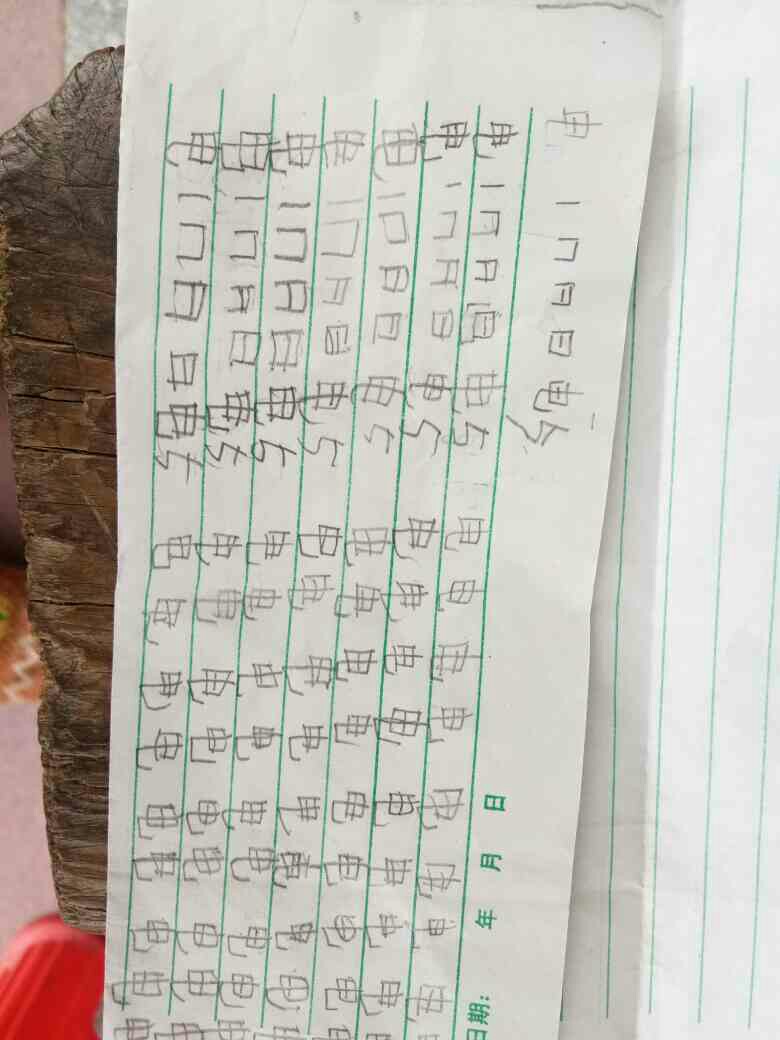 电 丨 冂 日 日 电 5
电 丨 冂 日 日 电 5 电 电 电 电 电 电 电 电
电 丨 冂 日 日 电 5 电 电 电 电 电 电 电 电
电 丨 冂 日 日 电 5 电 电 电 电 电 电 电 电
电 丨 冂 日 日 电 5 电 电 电 电 电 电 电 电
电 丨 冂 日 日 电 5 电 电 电 电 电 电 电 电
电 丨 冂 日 日 电 5 电 电 电 电 电 电 电 电
电 丨 冂 日 日 电 5 电 电 电 电 电 电 电 电
日期: 年 月 日